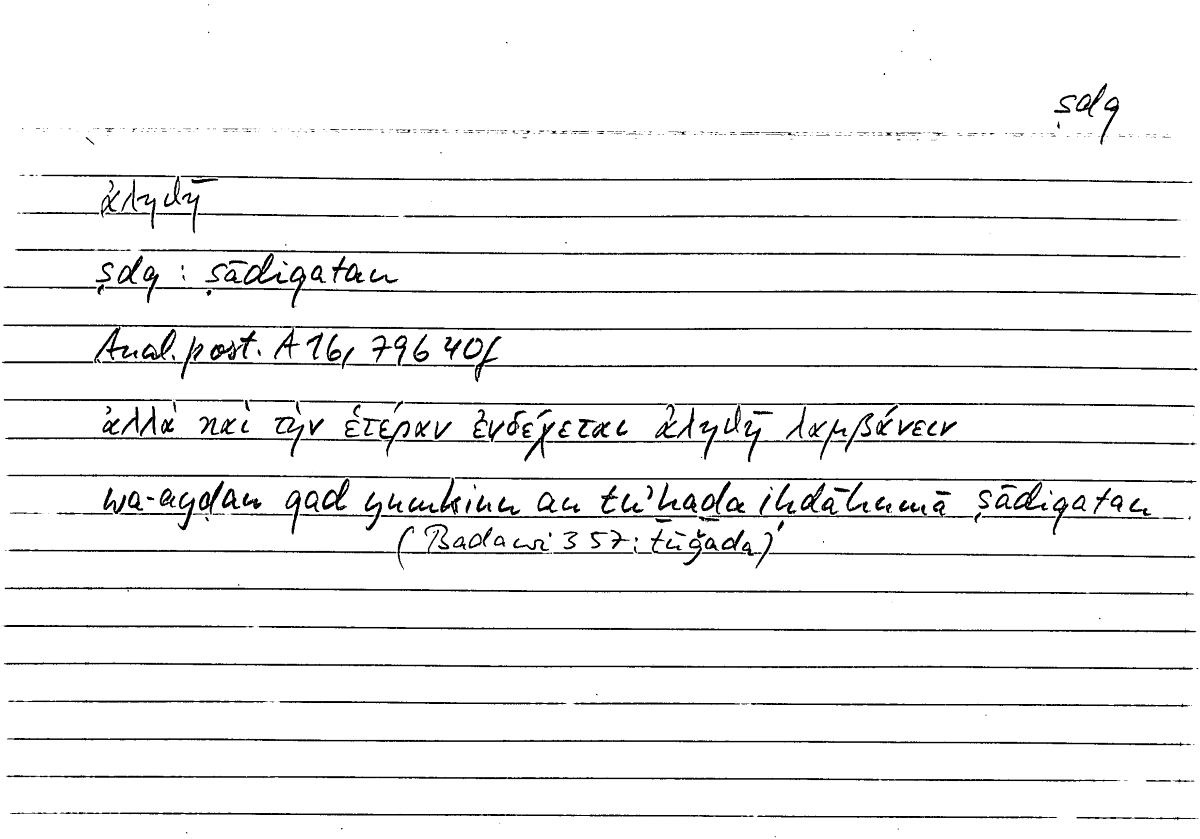 ṣdq
ἀληθῆ
ṣdq : ṣādiqatan
Anal. post. A 16, 79b 40f
ἀλλὰ καὶ τὴν ἑτέραν ἐνδέχεται ἀληθῆ λαμβάνειν
wa-ayḍan qad yumkinu an tu'ḫaḏa iḥdāhumā ṣādiqatan
(Badawi 357: tūǧada)